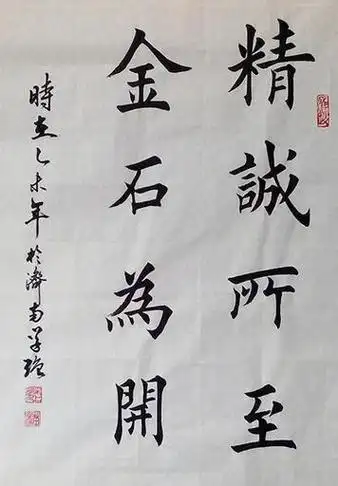 精誠所至
金石為開
時在乙未年於濟南